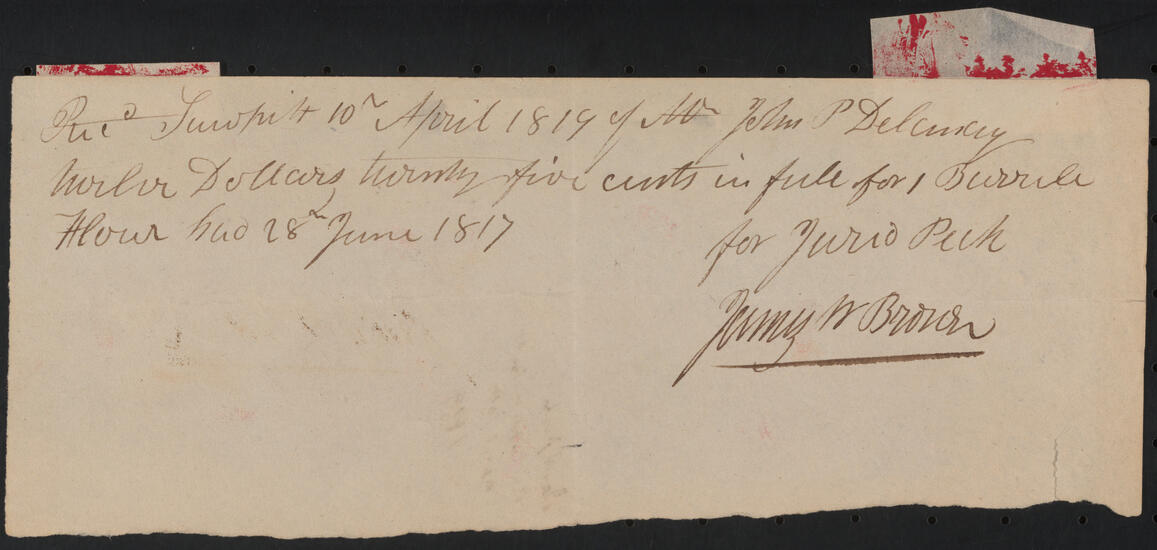 Rec'd Sawpitt 10th April 1819 of Mr John P Delancey
twelve Dollars twenty five cents in full for 1 Barrele
Flour had 28th June 1817
for Jarid Peck
James W Brown